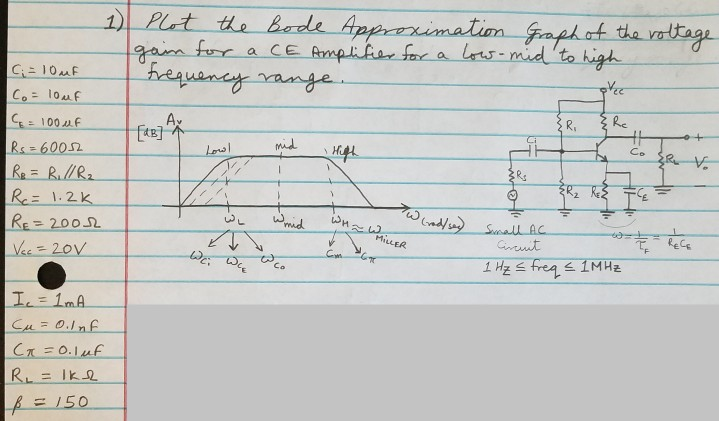 1) Plot the Bode Approximation Graph of the voltage
gain for a CE Amplifier for a low-mid to high
frequency range.
Ci = 10uF
Co = 10uF
CE = 100uF
RS = 600Ω
RB = R1//R2
RC = 1.2K
RE = 200Ω
Vcc = 20V
Ic = 1mA
Cu = 0.1nF
Cπ = 0.1uF
RL = 1kΩ
β = 150
Av
[dB]
Low1 mid High
ωL ωmid ωH ≈ ωMILLER ω(rad/sec)
ωCi ωCE ωCo Cm Cπ
Vcc
R1 Rc
Ci Co
Rs R2 RE CE RL Vo
+
-
Small AC
Circuit
ω = 1/τE = 1/RECE
1Hz ≤ freq ≤ 1MHz